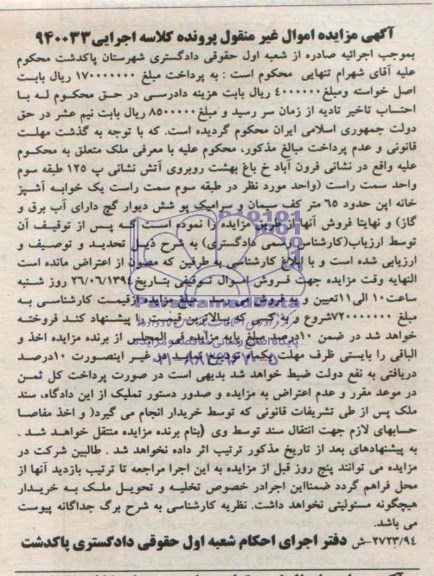 آگهی مزایده اموال غیر منقول پرونده کلاسه اجرایی ۹۴۰۰۳۳
بموجب اجرائیه صادره از شعبه اول حقوقی دادگستری شهرستان پاکدشت محکوم
علیه آقای شهرام تنهایی محکوم است : به پرداخت مبلغ ۱۷۰۰۰۰۰۰۰ ریال بابت
اصل خواسته ومبلغ ۴۰۰۰۰۰۰ ریال بابت هزینه دادرسی در حق محکوم له با
احتساب تاخیر تادیه از زمان سر رسید و مبلغ ۸۵۰۰۰۰۰ ریال بابت نیم عشر در حق
دولت جمهوری اسلامی ایران محکوم گردیده است. که با توجه به گذشت مهلت
قانونی و عدم پرداخت مبالغ مذکور، محکوم علیه با معرفی ملک متعلق به محکوم
علیه واقع در نشانی فرون آباد خ باغ بهشت روبروی آتش نشانی پ ۱۲۵ طبقه سوم
واحد سمت راست (واحد مورد نظر در طبقه سوم سمت راست یک خوابه آشپز
خانه اپن حدود ۶۵ متر کف سیمان و سرامیک پو شش دیوار گچ دارای آب برق و
گاز) و نهایتا فروش آنها از طریق مزایده را نموده است که پس از توقیف آن
توسط ارزیاب(کارشناس رسمی دادگستری) به شرح ذیل تحدید و توصیف و
ارزیابی شده است و با ابلاغ کارشناسی به طرفین که مصون از اعتراض مانده است
النهایه وقت مزایده جهت فروش اموال توقیفی بتاریخ ۲۶/۰۶/۱۳۹۴ روز شنبه
ساعت ۱۰ الی ۱۱ تعیین و به فروش میرسد. مبلغ مزایده از قیمت کارشناسی به
مبلغ ۷۲۰۰۰۰۰۰۰ شروع و به کسی که بالاترین قیمت را پیشنهاد کند فروخته
خواهد شد در ضمن ۱۰درصد مبلغ پایه مزایده فی المجلس از برنده مزایده اخذ و
الباقی را بایستی ظرف مهلت یکماه تودیع نماید در غیر اینصورت ۱۰درصد
دریافتی به نفع دولت ضبط خواهد شد بدیهی است در صورت پرداخت کل ثمن
در موعد مقرر و عدم اعتراض به مزایده و صدور دستور تملیک از این دادگاه، سند
ملک پس از طی تشریفات قانونی که توسط خریدار انجام می گیرد( و اخذ مفاصا
حسابهای لازم جهت انتقال سند توسط وی (بنام برنده مزایده منتقل خواهد شد .
به پیشنهادهای بعد از تاریخ مذکور ترتیب اثر داده نخواهد شد . طالبین شرکت در
مزایده می توانند پنج روز قبل از مزایده به این اجرا مراجعه تا ترتیب بازدید آنها از
محل فراهم گردد ضمنااین اجرادر خصوص تخلیه و تحویل ملک به خریدار
هیچگونه مسئولیتی نخواهد داشت. نظریه کارشناسی به شرح برگ جداگانه پیوست
می باشد.
۲۷۲۳/۹۴-ش دفتر اجرای احکام شعبه اول حقوقی دادگستری پاکدشت